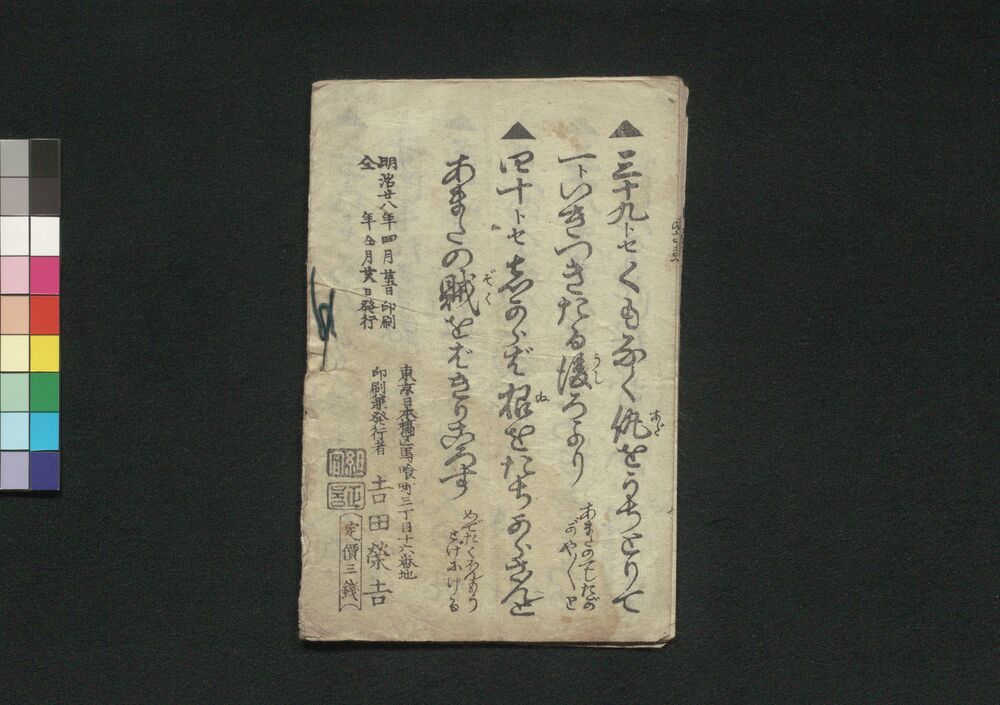 ▲三十九トセくもなく仇をうちとりて
一トいきつきたる後ろより
あまたのてしたが
どやくと
▲四十トセしからば根をたちからさんと
あまたの賊をばきりころす
めでたくほんもう
とげにける
明治廿八年四月 日印刷
仝 年仝月廿 日発行
東京日本橋区馬喰町三丁目十六番地
印刷兼発行者 吉田榮吉
定價三錢